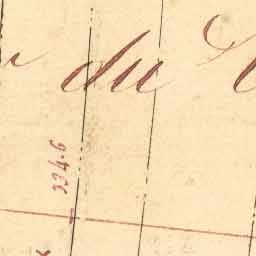 du
334.6